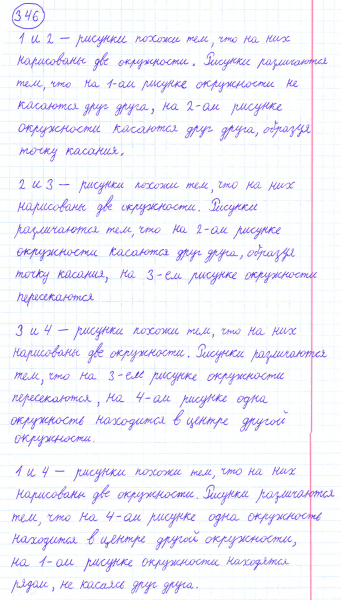 346
1 и 2 — рисунки похожи тем, что на них
нарисованы две окружности. Рисунки различаются
тем, что на 1-ом рисунке окружности не
касаются друг друга, на 2-ом рисунке
окружности касаются друг друга, образуя
точку касания.
2 и 3 — рисунки похожи тем, что на них
нарисованы две окружности. Рисунки
различаются тем, что на 2-ом рисунке
окружности касаются друг друга, образуя
точку касания, на 3-ем рисунке окружности
пересекаются
3 и 4 — рисунки похожи тем, что на них
нарисованы две окружности. Рисунки различаются
тем, что на 3-ем рисунке окружности
пересекаются, на 4-ом рисунке одна
окружность находится в центре другой
окружности.
1 и 4 — рисунки похожи тем, что на них
нарисованы две окружности. Рисунки различаются
тем, что на 4-ом рисунке одна окружность
находится в центре другой окружности,
на 1-ом рисунке окружности находятся
рядом, не касаясь друг друга.